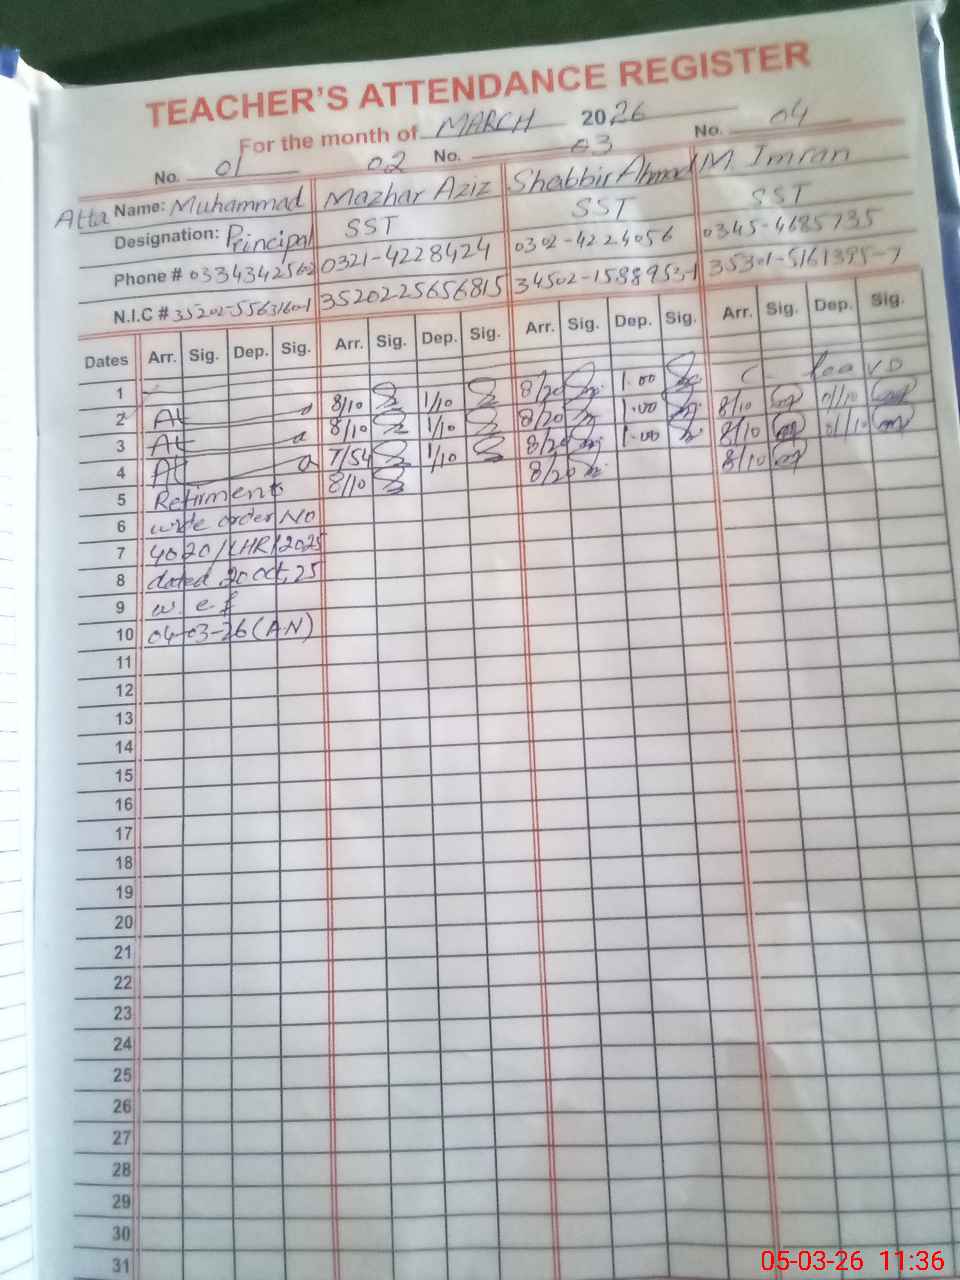 TEACHER'S ATTENDANCE REGISTER
For the month of MARCH 2026
No. 01 02 No. 03 No. 04
Name: Atta Muhammad Mazhar Aziz Shabbir Ahmad M. Imran
Designation: Principal SST SST SST
Phone # 03343425602 0321-4228424 0302-4224056 0345-4685735
N.I.C # 35202-25656815 35301-5161395-7
Dates Arr. Sig. Dep. Sig. Arr. Sig. Dep. Sig. Arr. Sig. Dep. Sig. Arr. Sig. Dep. Sig.
1
2 8/10 1/10 8/20 1.00 C
3 8/10 1/10 8/20 1.00 8/10
4 7/54 1/10 8/20 1.00 8/10
5 Retirment 8/10 8/20 8/10
6 order No
7 4020/LHR/2025
8 dated 20 Oct, 25
9 w.e.f
10 04-03-26 (AN)
11
12
13
14
15
16
17
18
19
20
21
22
23
24
25
26
27
28
29
30
31
05-03-26 11:36